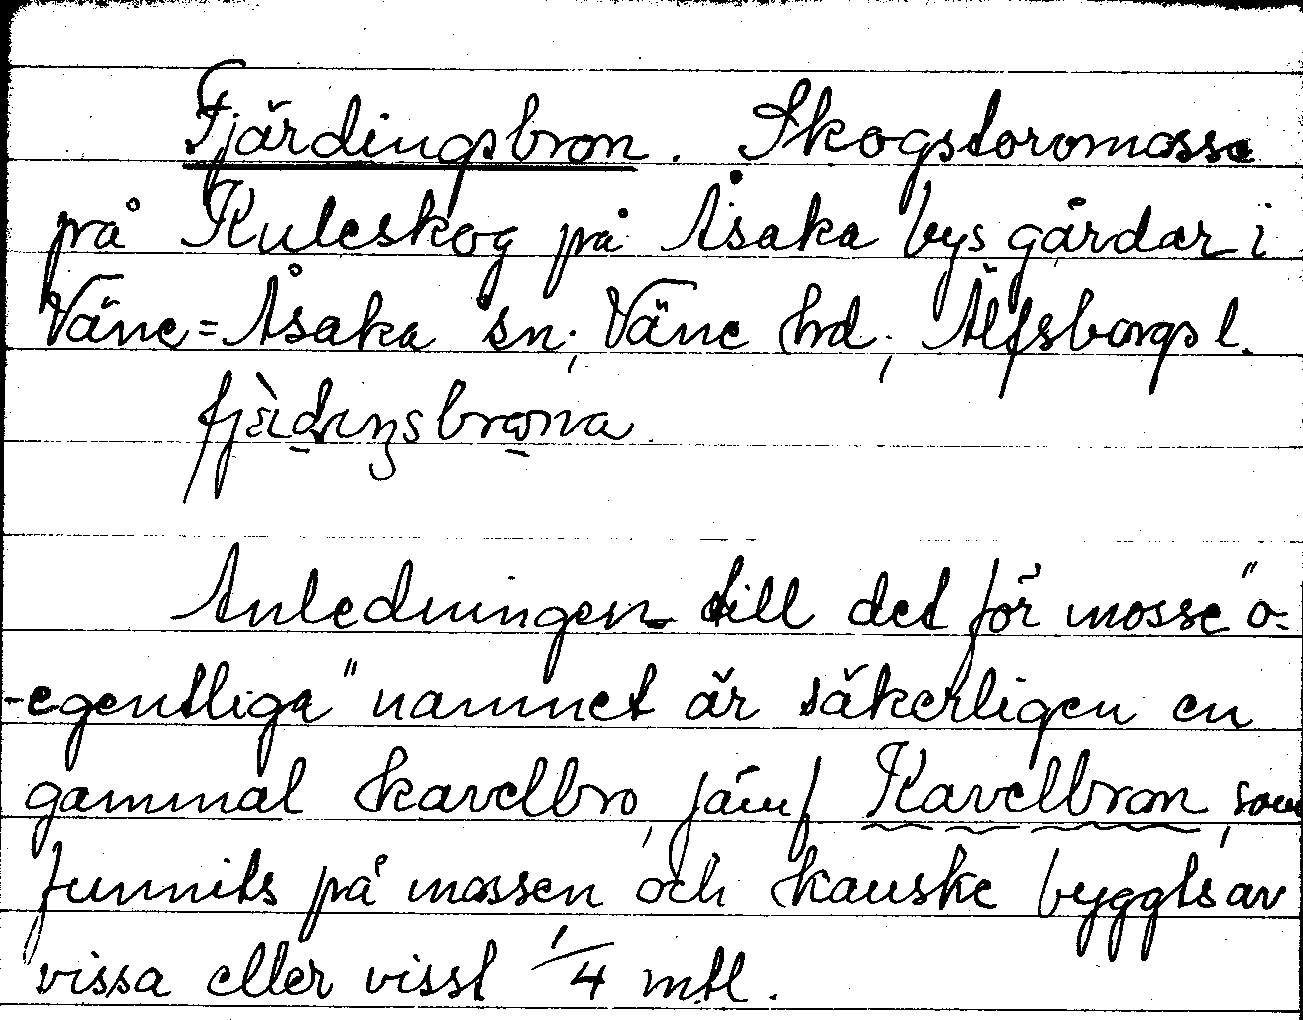 Fjärdingsbron. Skogstoromosse
på Kuleskog på Åsaka bys gårdar i
Väne=Åsaka sn; Väne hd; Älfsborgs l.
fjà̀dıŋsbrona
Anledningen till det för mosse "o-
-egentliga" namnet är säkerligen en
gammal kavelbro, jämf Kavelbron, som
funnits på mossen och kanske byggts av
vissa eller visst 1/4 mtl.